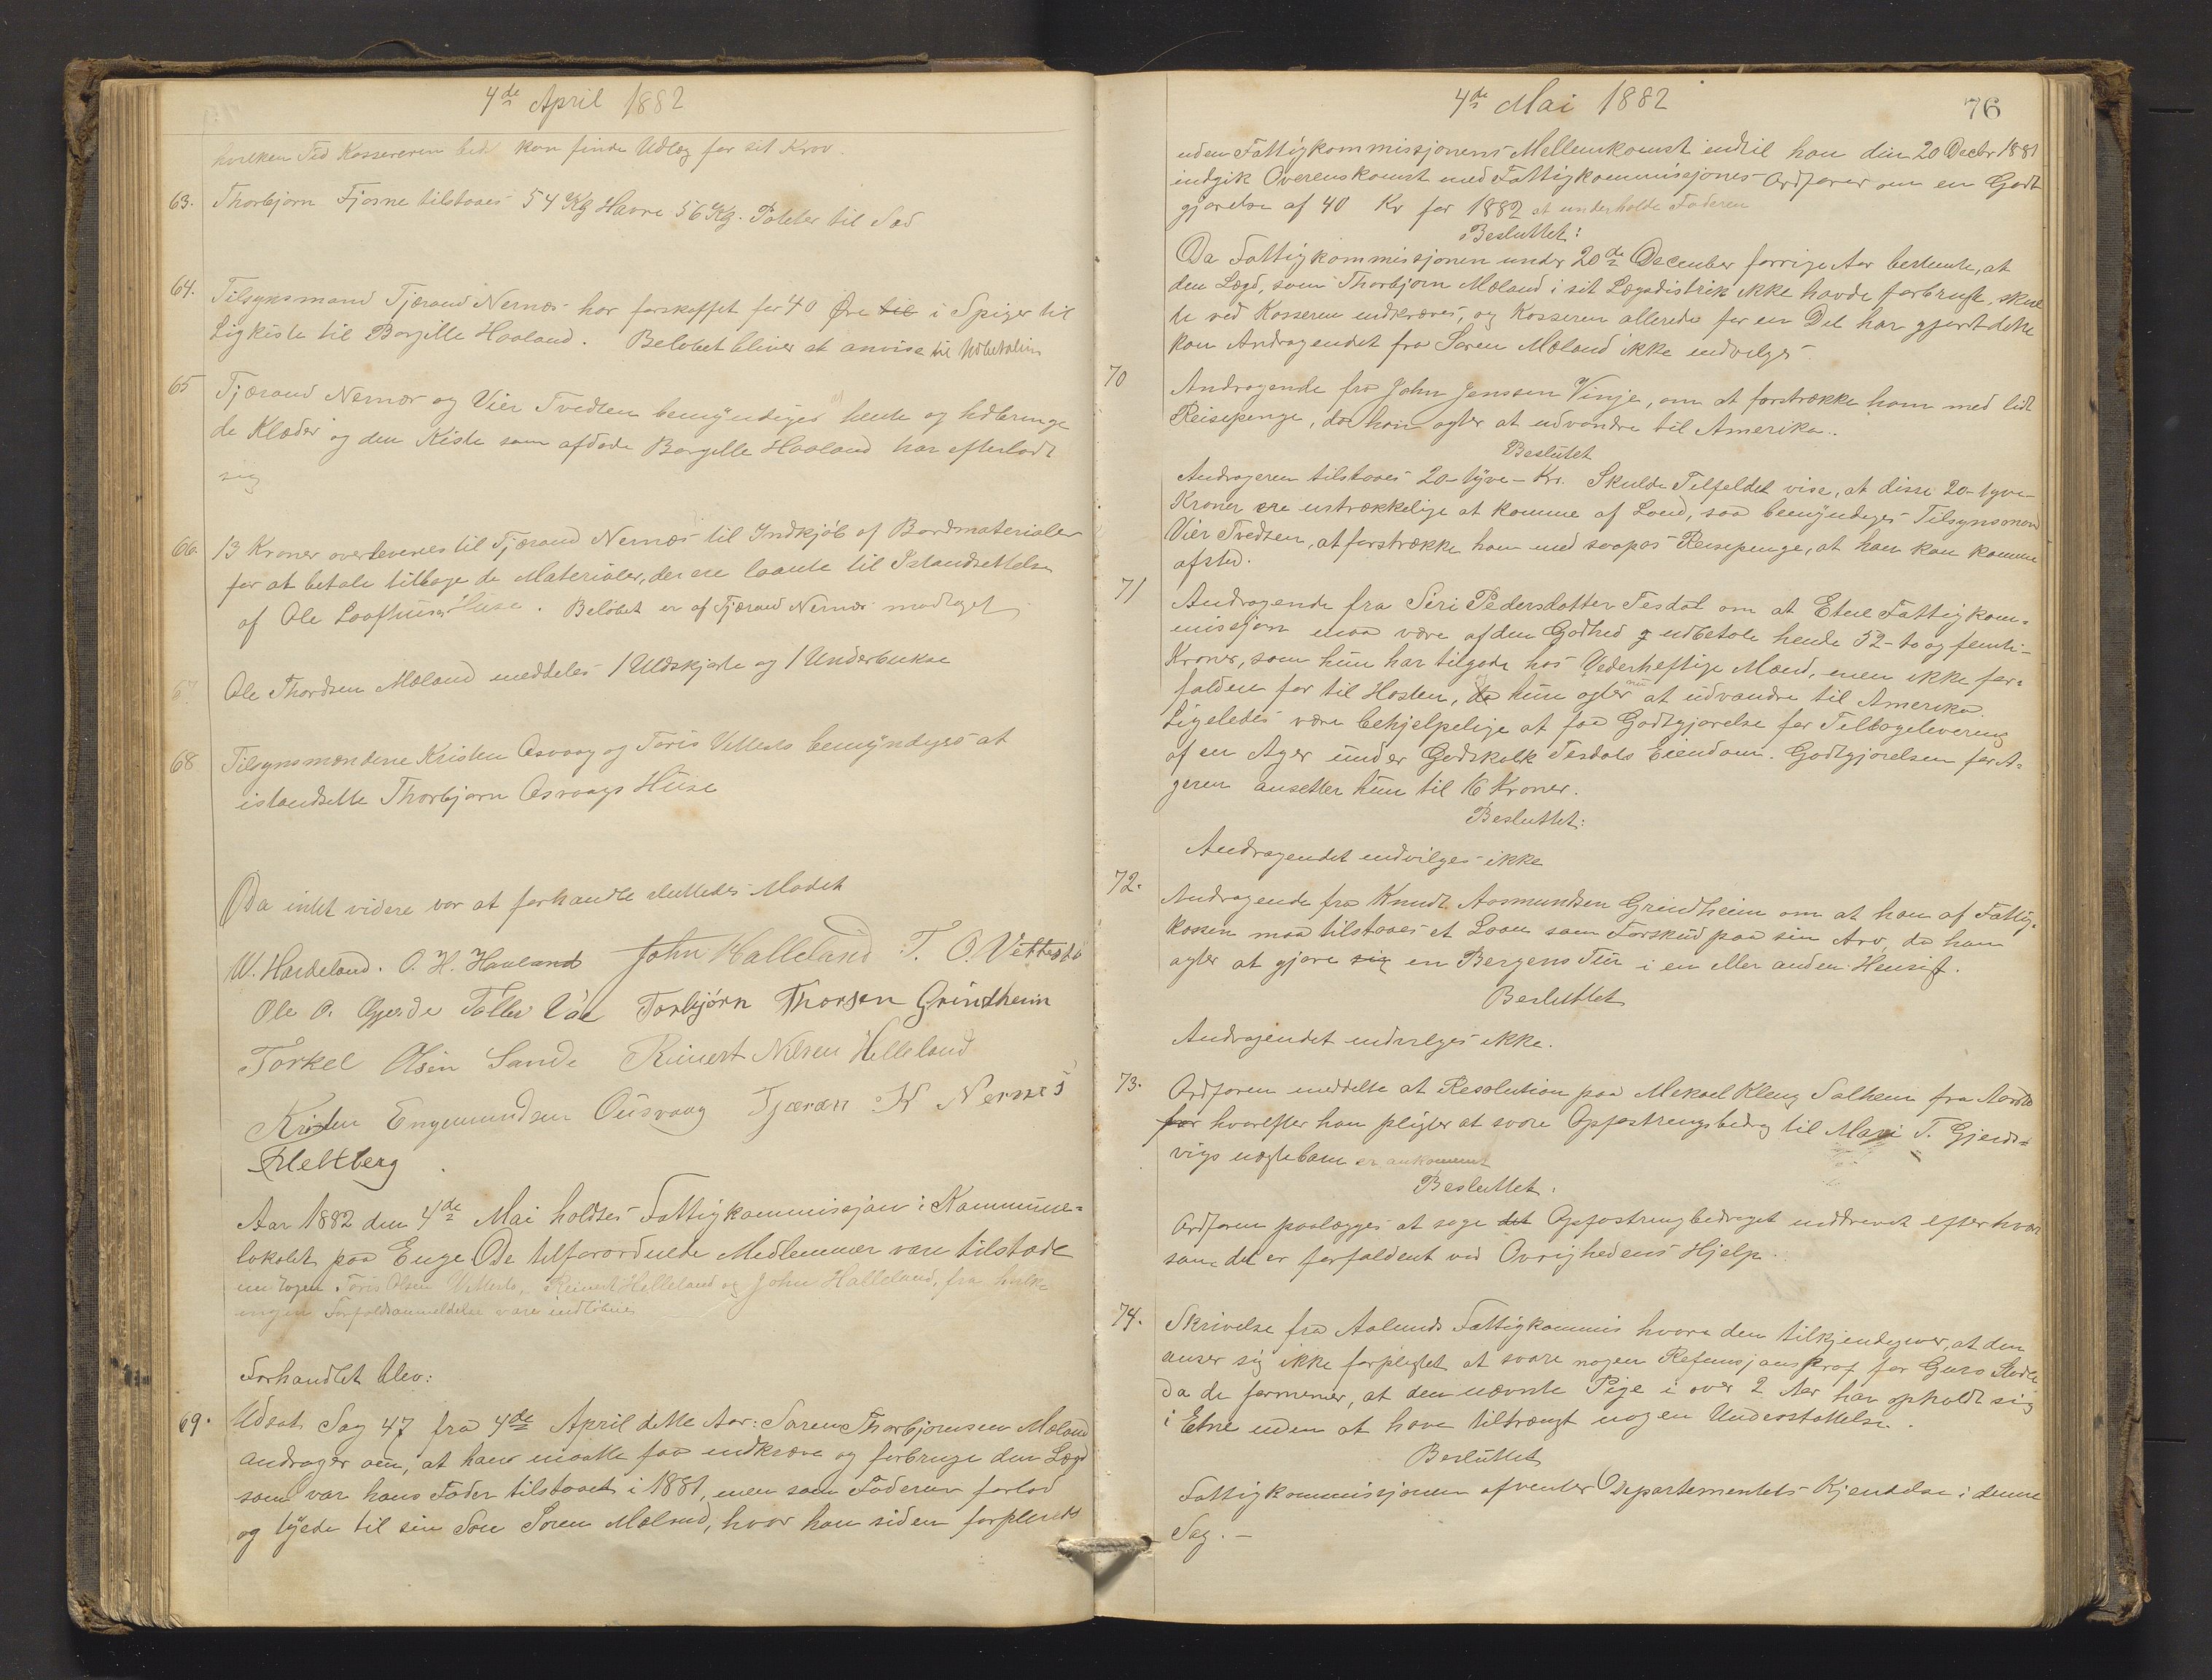 4de April 1882
hvilken Tid Kassereren bedst kan finde Udlæg for sit Krav.
63. Thorbjørn Fjøsne tilstaaes 54 Kg Havre 56 Kg. Poteter til Sæd
64. Tilsynsmand Tjærand Nernæs har forskaffet for 40 Øre til i Spiger til
Ligkiste til Borgille Haaland. Beløbet bliver at anvise til Udbetaling
65 Tjærand Nernæs og Vier Tvedten bemyndiges at hente og hidbringe
de Klæder og den Kiste som afdøde Borgille Haaland har efterladt
sig
66. 13 Kroner overleveres til Tjærand Nernæs til Indkjøb af Bordmaterialer
for at betale tilbage de Materialer, der ere laante til Istandsettelse
af Ole Laafhus Huse. Beløbet er af Tjærand Nernæs modtaget
67. Ole Thordsen Mæland meddeles 1 Uldskjorte og 1 Underbukse
68 Tilsynsmændene Kristen Osvaag og Tøris Vettestø bemyndiges at
istandsette Thorbjørn Osvaags Huse
Da intet videre var at forhandle sluttedes Mødet
W. Hardeland. O. H. Haaland John Halleland T. O. Vettestø
Ole O. Gjerde Tollev Vae Torbjørn Thorsen Grindheim
Torkel Olsen Sande Reinert Nilsen Helleland
Kristen Engemundsen Ousvaag Tjæran K Nernes
F. Heltberg
Aar 1882 den 4de Mai holdtes Fattigkommissjon i Kommune-
lokalet paa Enge De tilforordnede Medlemmer vare tilstede
undtagen Tøris Olsen Vettestø, Reinert Helleland og John Halleland, fra hvilke
ingen Forfaldsanmeldelse vare indløbne
Forhandlet blev:
69. Udsat Sag 47 fra 4de April dette Aar: Søren Thorbjørnsen Mæland
andrager om, at han maatte faa indkræve og forbruge den Lægd
som var hans Fader tilstaaet i 1881, men som Faderen forlod
og tyede til sin Søn Søren Mæland, hvor han siden forpleiedes
4de Mai 1882
76
uden Fattigkommissjonens Mellemkomst indtil han din 20 Decbr 1881
indgik Overenskomst med Fattigkommissjones Ordfører om en Godt
gjørelse af 40 Kr for 1882 at underholde Faderen
Besluttet:
Da Fattigkommissjonen under 20de December forrige Aar bestemte, at
den Lægd, som Thorbjørn Mæland i sit Lægdsdistrik ikke havde forbrugt, skul
de ved Kasseren indkræves, og Kasseren allerede for en Del har gjort dette
kan Andragendet fra Søren Mæland ikke indvilges
70 Andragende fra John Jenssen Vinje, om at forstrække ham med lidt
Reisepenge, da han agter at udvandre til Amerika.
Beslutet
Andrageren tilstaaes 20-tyve- Kr. Skulde Tilfeldet vise, at disse 20-tyve-
Kroner ere ustrækkelige at komme af Land, saa bemyndiges Tilsynsmand
Vier Tvedten, at forstrække ham med saapas Reisepenge, at han kan komme
afsted.
71 Andragende fra Siri Pedersdotter Tesdal om at Etne Fattigkom-
missjon maa være af den Godhed og udbetale hende 52-to og femti-
Kroner, som hun har tilgode hos Vederheftige Mænd, men ikke for-
falden før til Høsten, da hun agter nu at udvandre til Amerika.
Ligeledes være behjelpelige at faa Godtgjørelse for Tilbagelevering
af en Ager under Godskalk Tesdals Eiendom. Godtgjørelsen for A-
geren ansetter hun til 16 Kroner.
Besluttet:
Andragendet indvilges ikke
72. Andragende fra Knudt Aasmundsen Grindheim om at han af Fattig-
kassen maa tilstaaes et Laan som Forskud paa sin Arv, da han
agter at gjøre sig en Bergens Tur i en eller anden Hensigt.
Besluttet
Andragendet indvilges ikke.
73. Ordføren meddelte at Resolution paa Mekael Kleng Salhem fra
for hvorefter han pligter at svare Opfostringsbidrag til Mari T. Gjerds-
vigs uægtebarn er ankommet
Besluttet.
Ordføren paalægges at søge det Opfostringbedraget inddrevet efterhvert
som det er forfaldent ved Øvrighedens Hjelp.
74. Skrivelse fra Aalunds Fattigkommis hvori den tilkjendegiver, at den
anser sig ikke forpligtet at svare nogen Refunsjonskrav for Guro
da de formener, at den nævnte Pige i over 2 Aar har opholdt sig
i Etne uden at have tiltrængt nogen Understøttelse.
Besluttet
Fattigkommissjonen afventer Departementets Kjendelse i denne
Sag. -